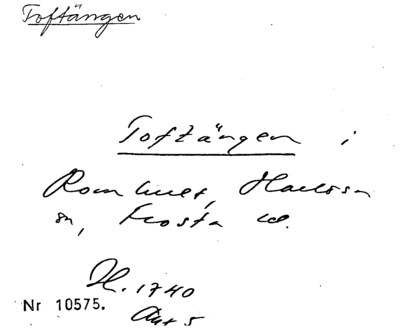 Toftängen
Toftängen i
Romhult, Harlösa
sn, Frosta hd.
H. 1740
Nr 10575.